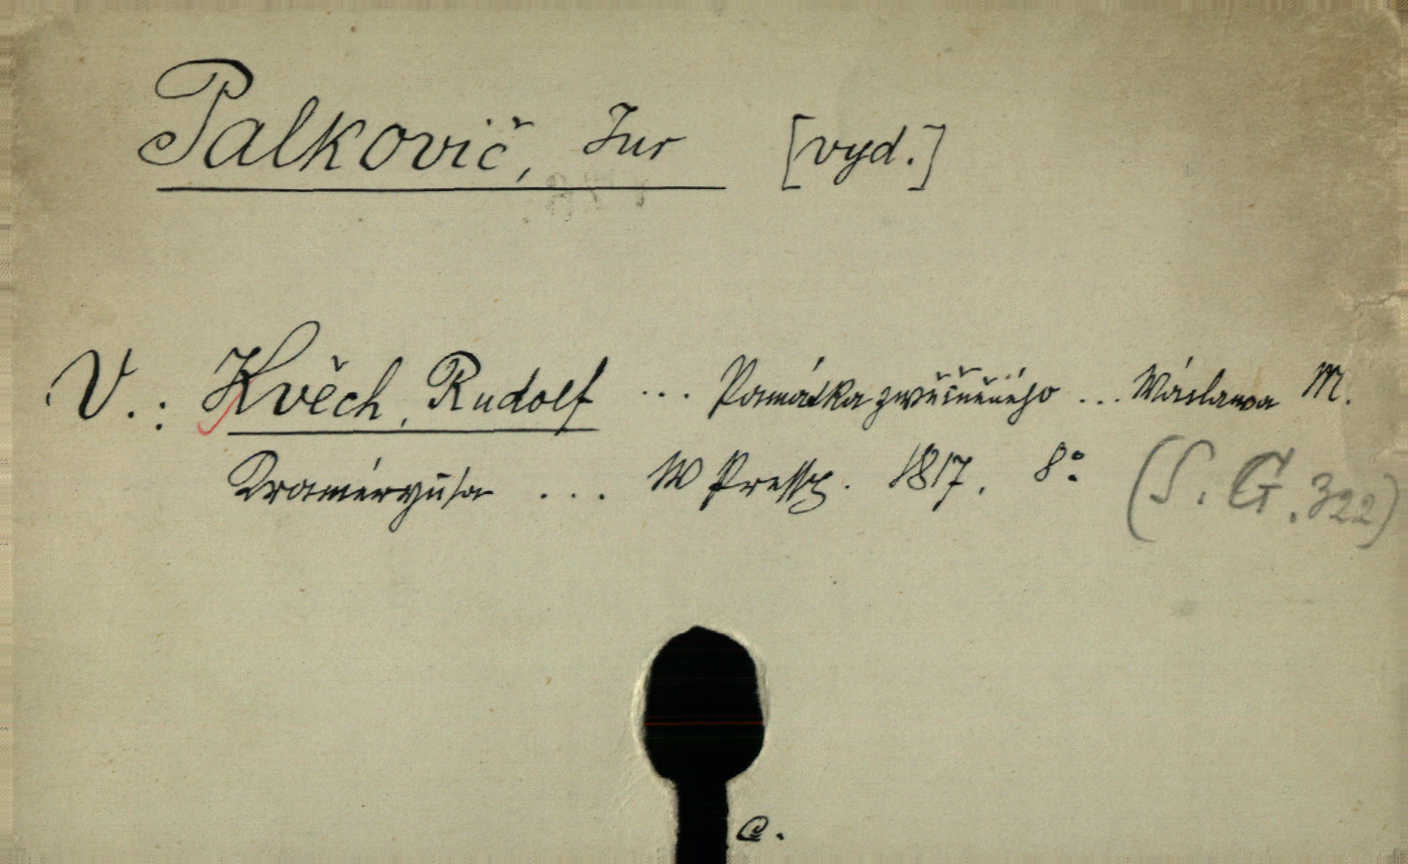 Palkovič, Jur [vyd.]
V.: Hvěch, Rudolf ... Památka zwěčněného ... Wáclawa M.
Kraméryusa ... W Pressp. 1817. 8°. (S. G. 322)
C.